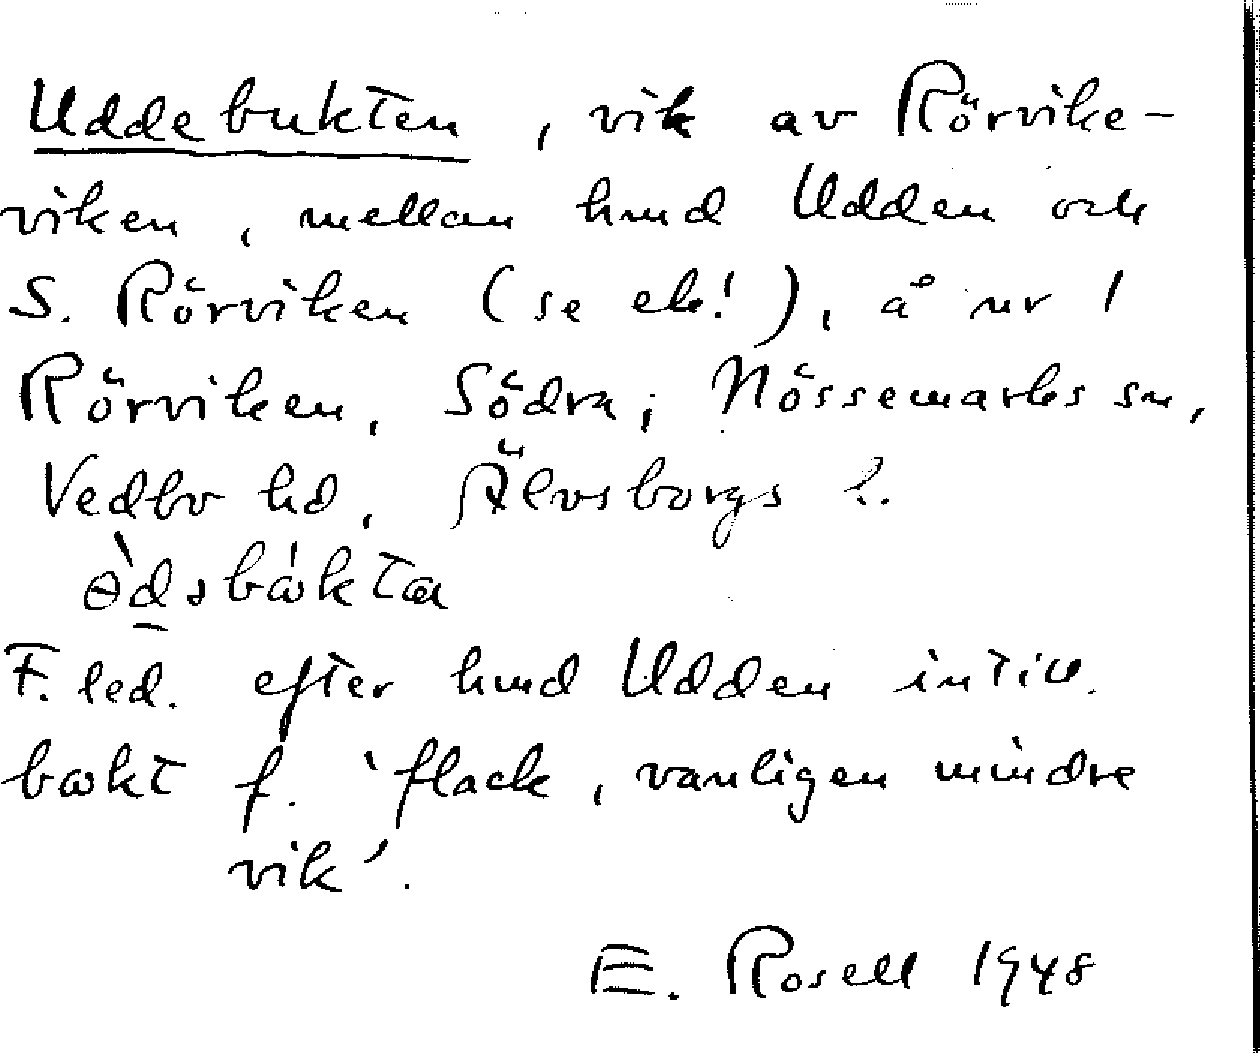 Uddebukten, vik av Rörvike-
viken, mellan hmd Udden och
S. Rörviken (se ek!), å nr 1
Rörviken, Södra; Nössemarks sn,
Vedbo hd, Älvsborgs l.
F. led. efter hmd Udden intill.
bɷkt f. 'flack, vanligen mindre
vik'.
E. Rosell 1948